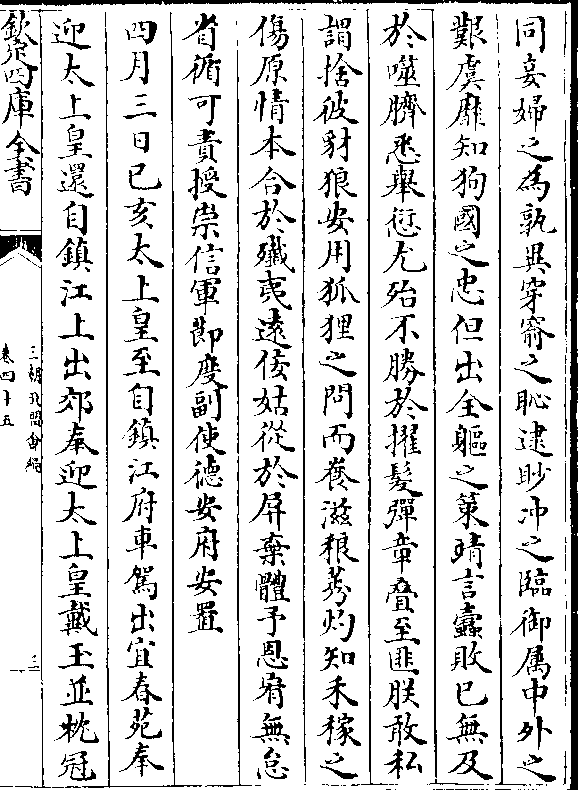 同妾婦之為孰異穿窬之恥逮眇沖之臨御属中外之
艱虞靡知狥國之忠但出全軀之策靖言蠧敗已無及
於噬臍悉舉愆尤殆不勝於擢髮彈章疊至匪朕敢私
謂捨彼豺狼安用狐狸之問而養滋稂莠灼知禾稼之
傷原情本合於殱夷遠佞姑從於屏棄體予恩宥無怠
省循可責授崇信軍節度副使德安府安置
四月三日已亥太上皇至自鎮江府車駕出宜春苑奉
迎太上皇還自鎮江上出郊奉迎太上皇戴玉並桃冠
欽定四庫全書
三朝北盟會編
卷四十五